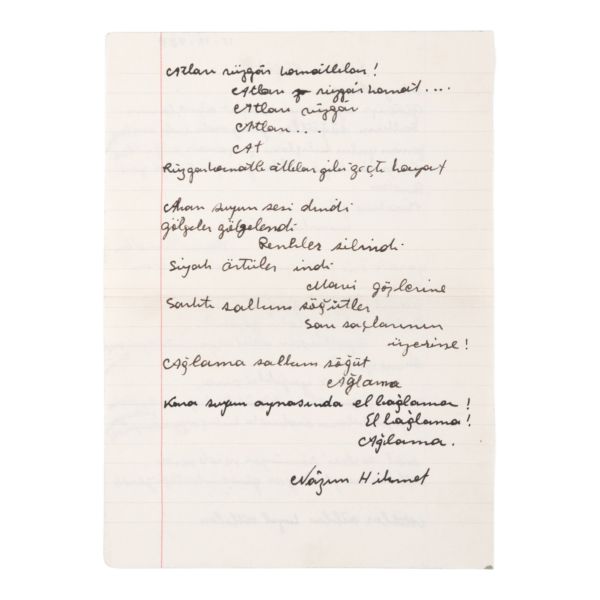 Atları rüzgâr kanatlılar!
Atları rüzgâr kanat....
Atları rüzgâr
Atları...
At
Rüzgâr kanatlı atlılar gibi geçti hayat
Akan suyun sesi dindi
gölgeler gölgelendi
Renkler silindi
Siyah örtüler indi
Mavi gözlerine
Sarktı salkım söğütler
Sarı saçlarının
üzerine!
Ağlama salkım söğüt
Ağlama
Kara suyun aynasında el bağlama!
El bağlama!
Ağlama.
Nâzım Hikmet